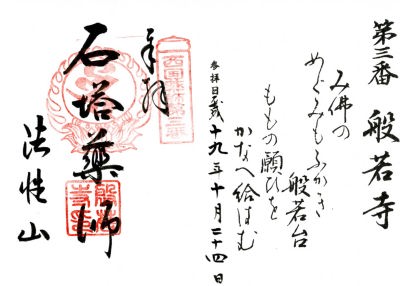 第三番 般若寺
み佛の
めぐみもふかき
般若台
ももの願ひを
かなへ給はむ
参拝日平成十九年十月二十四日
奉拝
石塔薬師
法性山